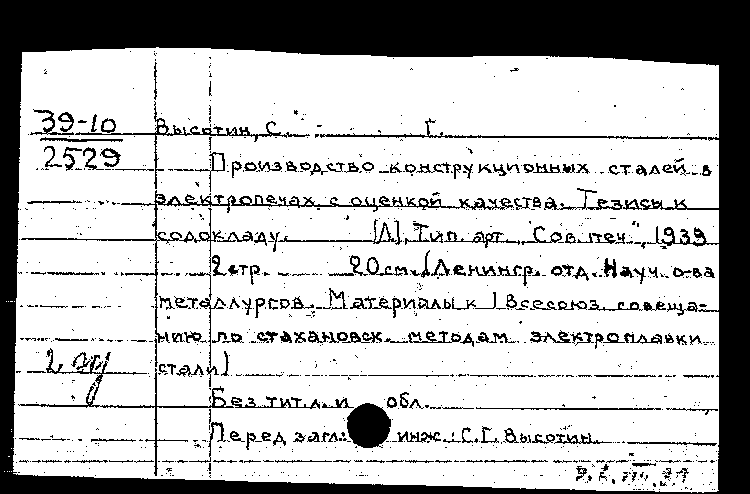 39-10
2529
Высотин, С. Г.
Производство конструкционных сталей в
электропечах с оценкой качества. Тезисы к
содокладу. [Л], Тип. арт. "Сов. печ.", 1939
2 стр. 20 см. (Ленингр. отд. Науч. о-ва
металлургов. Материалы к I Всесоюз. совеща-
нию по стахановск. методам электроплавки
стали)
2
Без тит. л. и обл.
Перед загл.: инж. С. Г. Высотин.